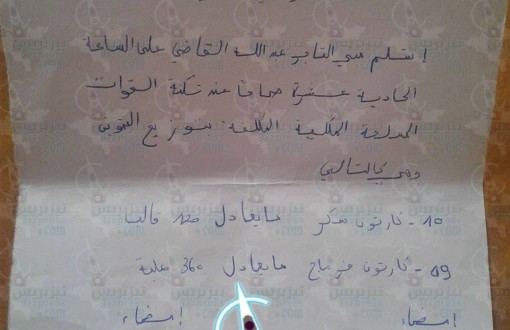 إستلم مني التاجر عبد الله القاضي على الساعة
الحادية عشرة صباحا عند ثكنة القوات
المسلحة الملكية المكلفة بتوزيع التموين
وهي كالتالي
10 - كارتون سكر مايعادل قالب
09 - كارتون فرماج مايعادل 360 علبة
إمضاء إمضاء
تيزبريس